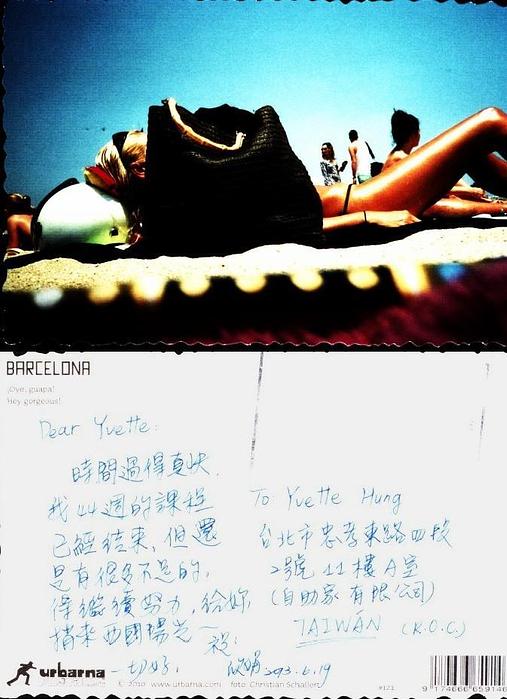 BARCELONA
¡Oye, guapa!
Hey gorgeous!
Dear Yvette:
時間過得真快.
我44週的課程
已經結束, 但還
是有很多不足的,
得繼續努力, 給妳
捎來西國陽光~
祝:
一切好.
2013.6.19
To Yvette Hung
台北市忠孝東路四段
2號 11 樓 A 室
(自助家有限公司)
TAIWAN (R.O.C.)
urbarna
© 2010 www.urbarna.com foto: Christian Schallert
#121
9 174666 65914